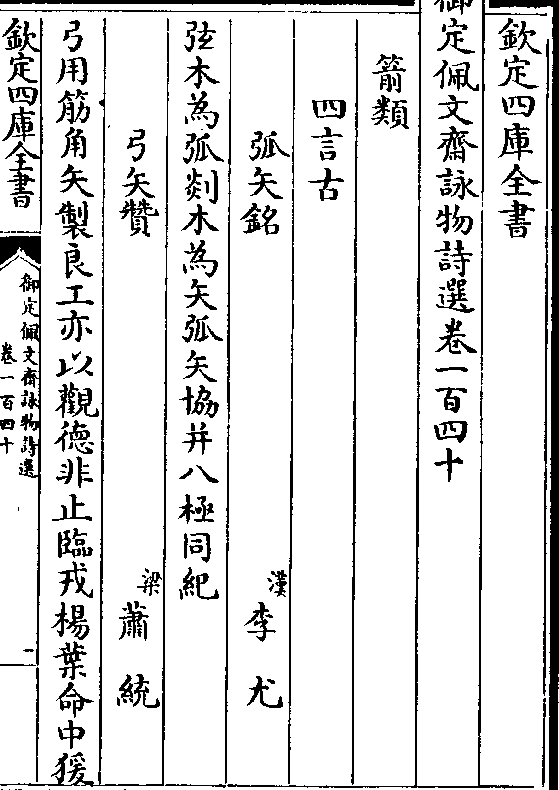 欽定四庫全書
御定佩文齋詠物詩選卷一百四十
箭類
四言古
弧矢銘 漢 李尤
弦木為弧剡木為矢弧矢協并八極同紀
弓矢贊 梁 蕭統
弓用筋角矢製良工亦以觀德非止臨戎楊葉命中猨
欽定四庫全書
御定佩文齋詠物詩選
卷一百四十
一